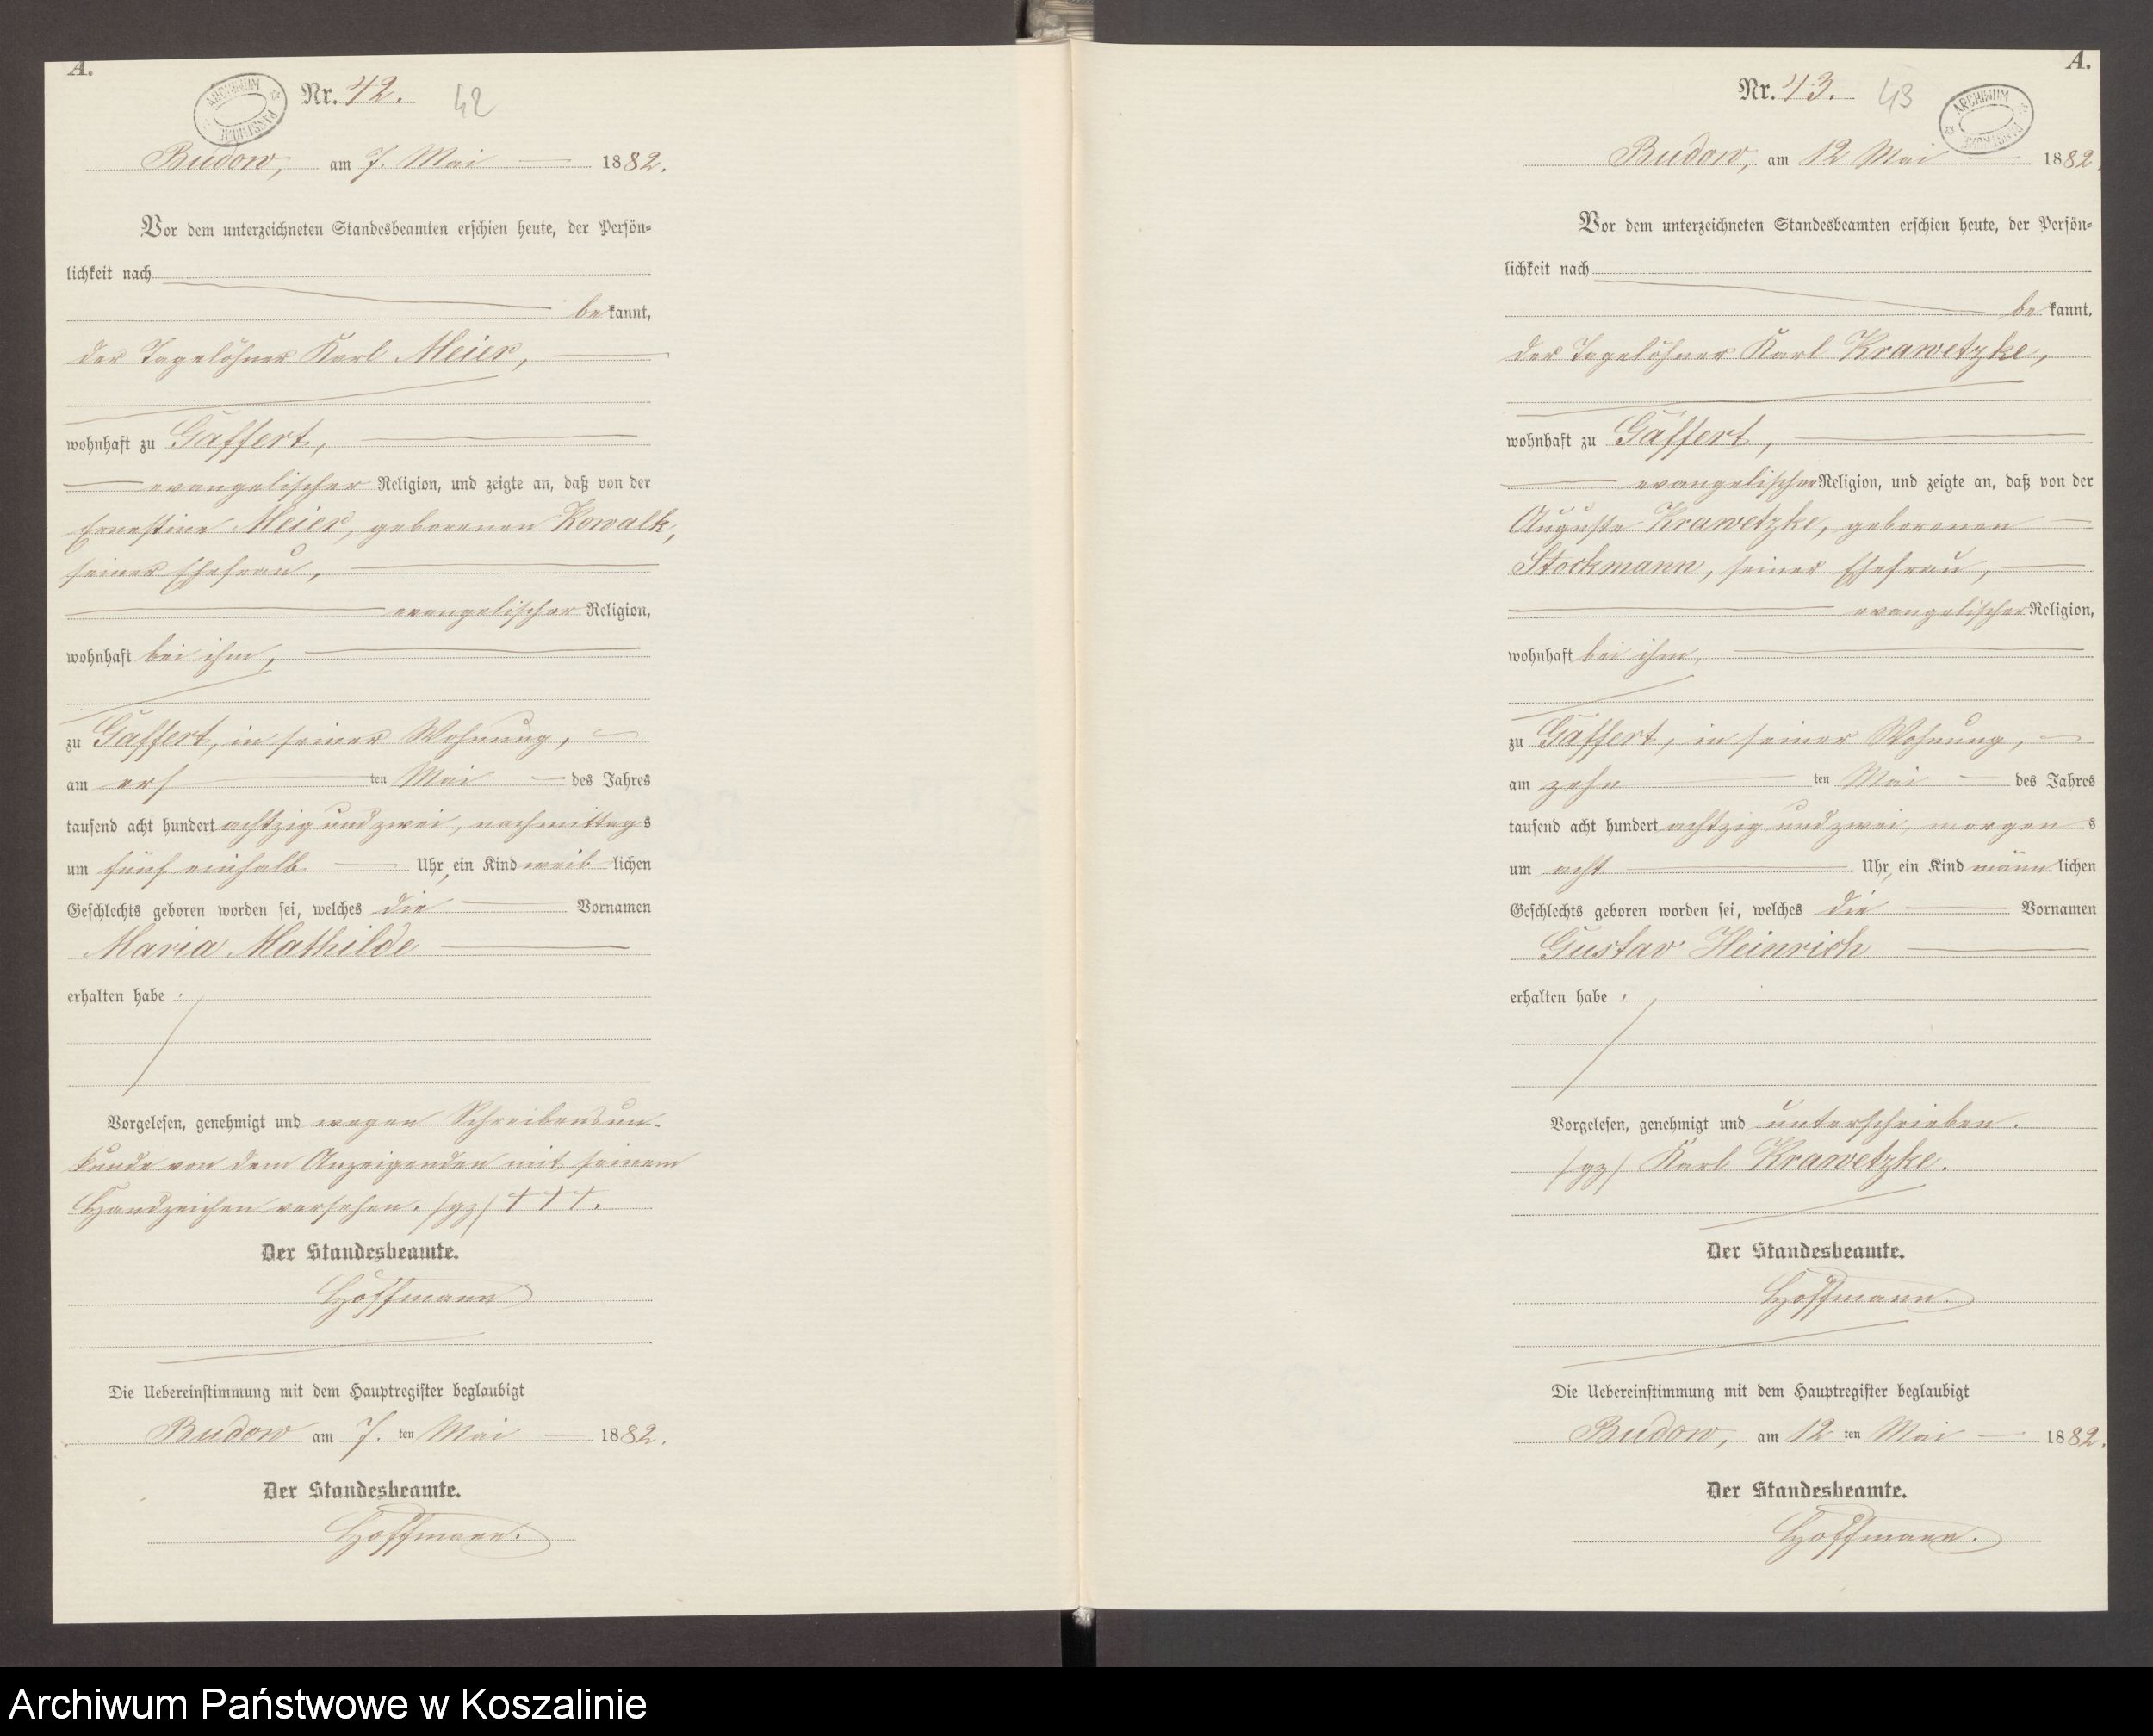 A.
ARCHIWUM PAŃSTWOWE
Nr. 42. 42
Budow, am 7. Mai 1882.
Vor dem unterzeichneten Standesbeamten erschien heute, der Persön-
lichkeit nach
bekannt,
der Tagelöhner Karl Meier,
wohnhaft zu Gaffert,
evangelischer Religion, und zeigte an, daß von der
Ernestine Meier, geborenen Kowalk,
seiner Ehefrau,
evangelischer Religion,
wohnhaft bei ihm,
zu Gaffert, in seiner Wohnung,
am ersten Mai des Jahres
tausend acht hundert achtzig und zwei, nachmittags
um fünf einhalb Uhr, ein Kind weiblichen
Geschlechts geboren worden sei, welches die Vornamen
Maria Mathilde
erhalten habe.
Vorgelesen, genehmigt und wegen Schreibensun-
kunde von dem Anzeigenden mit seinem
Handzeichen versehen. /gz/ † † †.
Der Standesbeamte.
Hoffmann
Die Uebereinstimmung mit dem Hauptregister beglaubigt
Budow am 7. ten Mai 1882.
Der Standesbeamte.
Hoffmann.
A.
Nr. 43. 43
ARCHIWUM PAŃSTWOWE
Budow, am 12 Mai 1882.
Vor dem unterzeichneten Standesbeamten erschien heute, der Persön-
lichkeit nach
bekannt,
der Tagelöhner Karl Krawetzke,
wohnhaft zu Gaffert,
evangelischer Religion, und zeigte an, daß von der
Auguste Krawetzke, geborenen
Stockmann, seiner Ehefrau,
evangelischer Religion,
wohnhaft bei ihm,
zu Gaffert, in seiner Wohnung,
am zehnten Mai des Jahres
tausend acht hundert achtzig und zwei, morgens
um acht Uhr, ein Kind männlichen
Geschlechts geboren worden sei, welches die Vornamen
Gustav Heinrich
erhalten habe.
Vorgelesen, genehmigt und unterschrieben.
/gz/ Karl Krawetzke.
Der Standesbeamte.
Hoffmann.
Die Uebereinstimmung mit dem Hauptregister beglaubigt
Budow, am 12 ten Mai 1882.
Der Standesbeamte.
Hoffmann.
Archiwum Państwowe w Koszalinie